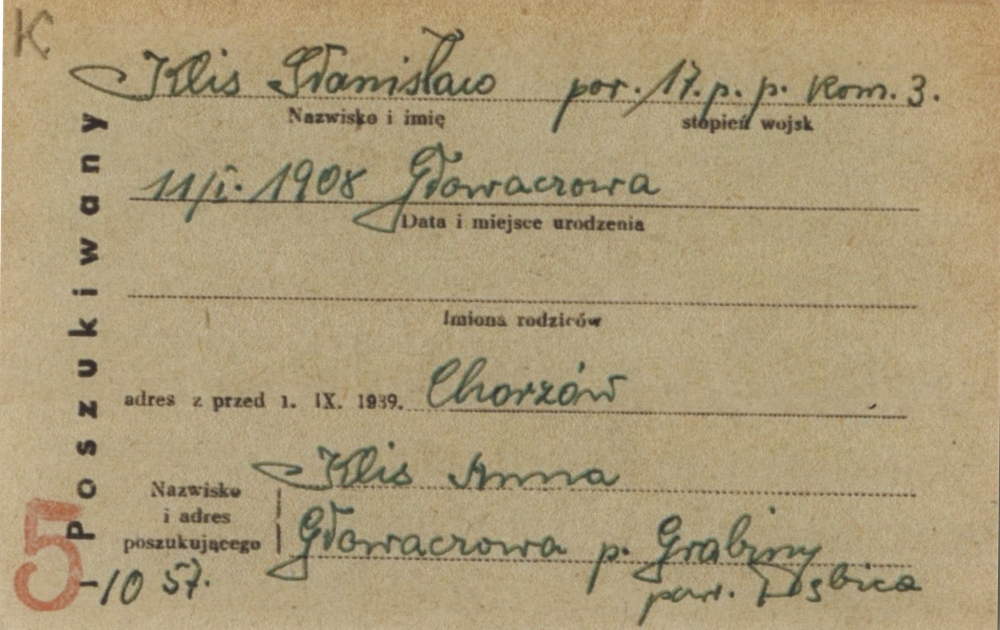 K
Klis Stanisław por. 17. p. p. Kom. 3.
Nazwisko i imię stopień wojsk
11/I. 1908 Głowaczowa
Data i miejsce urodzenia
Imiona rodziców
adres z przed 1. IX. 1939. Chorzów
Klis Anna
Nazwisko
i adres
poszukującego
Głowaczowa p. Grabiny
pow. Dębica
Poszukiwany
5
-10 57.